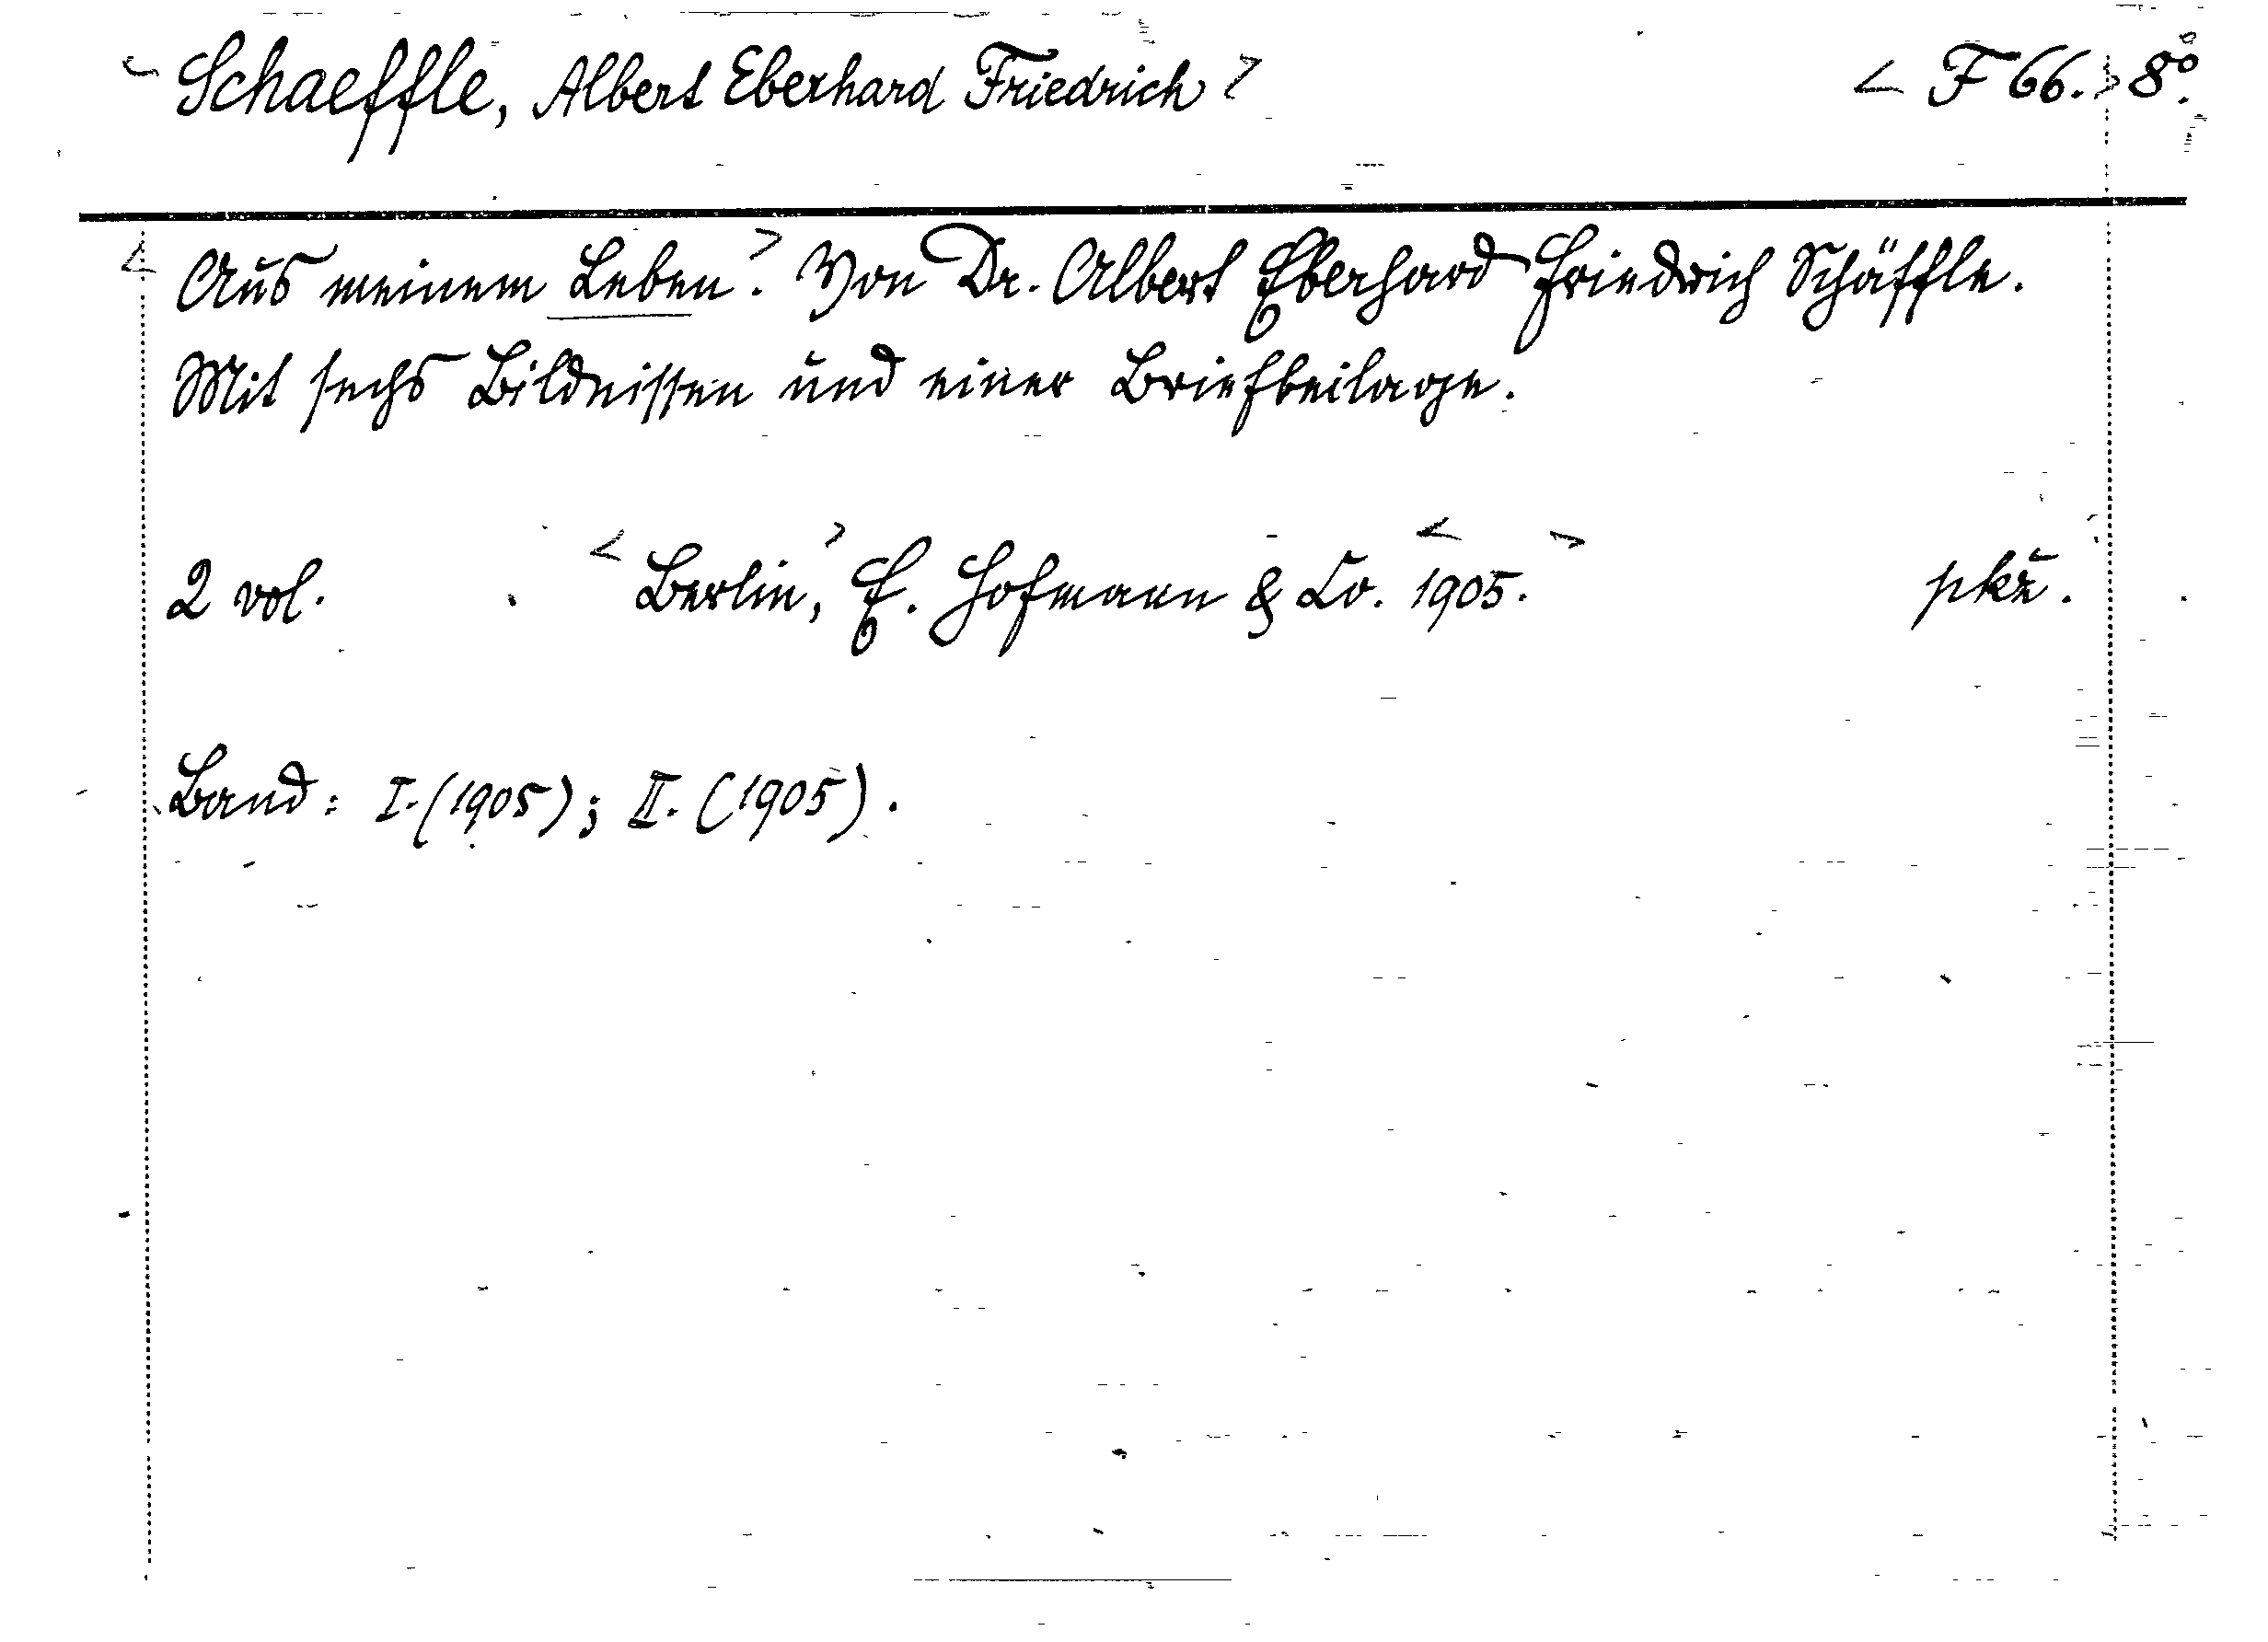 < Schaeffle, Albert Eberhard Friedrich > < F 66. > 8°.
< Aus meinem Leben. > Von Dr. Albert Eberhard Friedrich Schäffle.
Mit sechs Bildnissen und einer Briefbeilage.
2 vol. < Berlin, > E. Hofmann & Co. < 1905. >
Band: I. (1905); II. (1905).